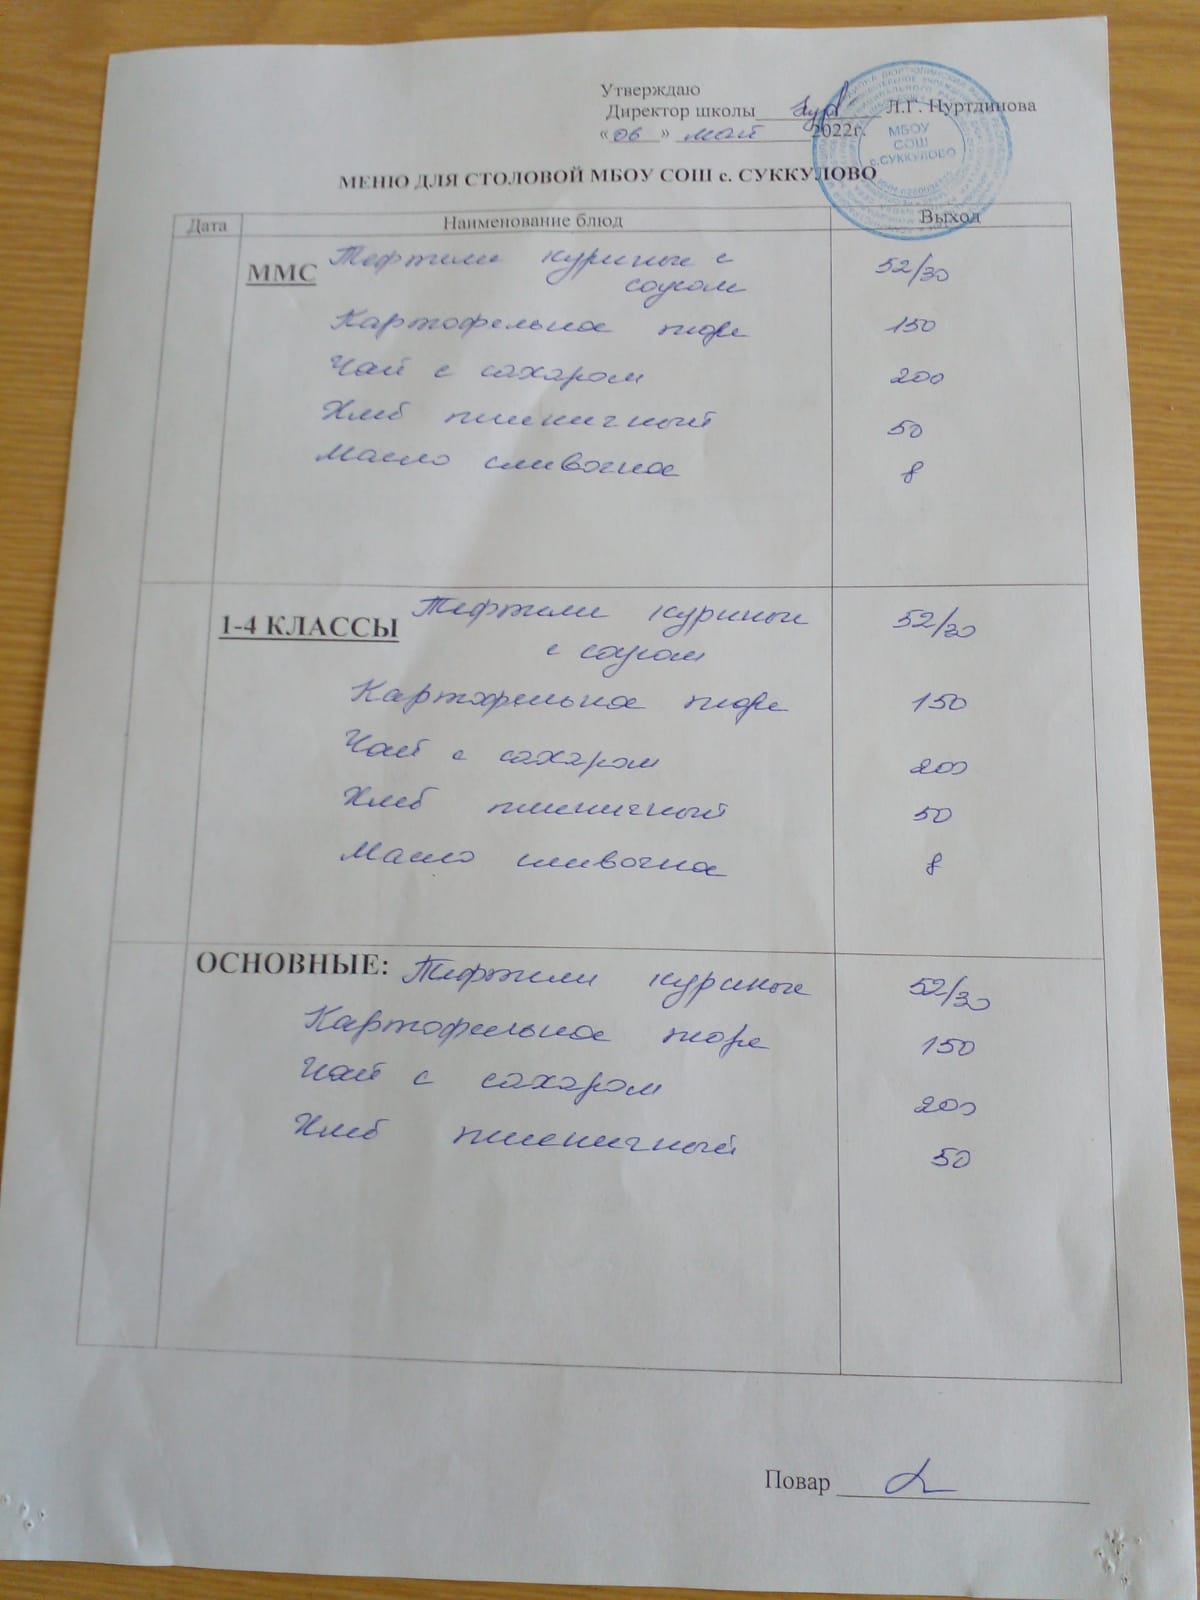 Утверждаю
Директор школы Л.Г. Нуртдинова
«06» май 2022г.
МБОУ
СОШ
с.СУККУЛОВО
МЕНЮ ДЛЯ СТОЛОВОЙ МБОУ СОШ с. СУККУЛОВО
Дата Наименование блюд Выход
ММС Тефтели куриные с 52/30
соусом
Картофельное пюре 150
Чай с сахаром 200
Хлеб пшеничный 50
Масло сливочное 8
1-4 КЛАССЫ Тефтели куриные 52/30
с соусом
Картофельное пюре 150
Чай с сахаром 200
Хлеб пшеничный 50
Масло сливочное 8
ОСНОВНЫЕ: Тефтели куриные 52/30
Картофельное пюре 150
Чай с сахаром 200
Хлеб пшеничный 50
Повар